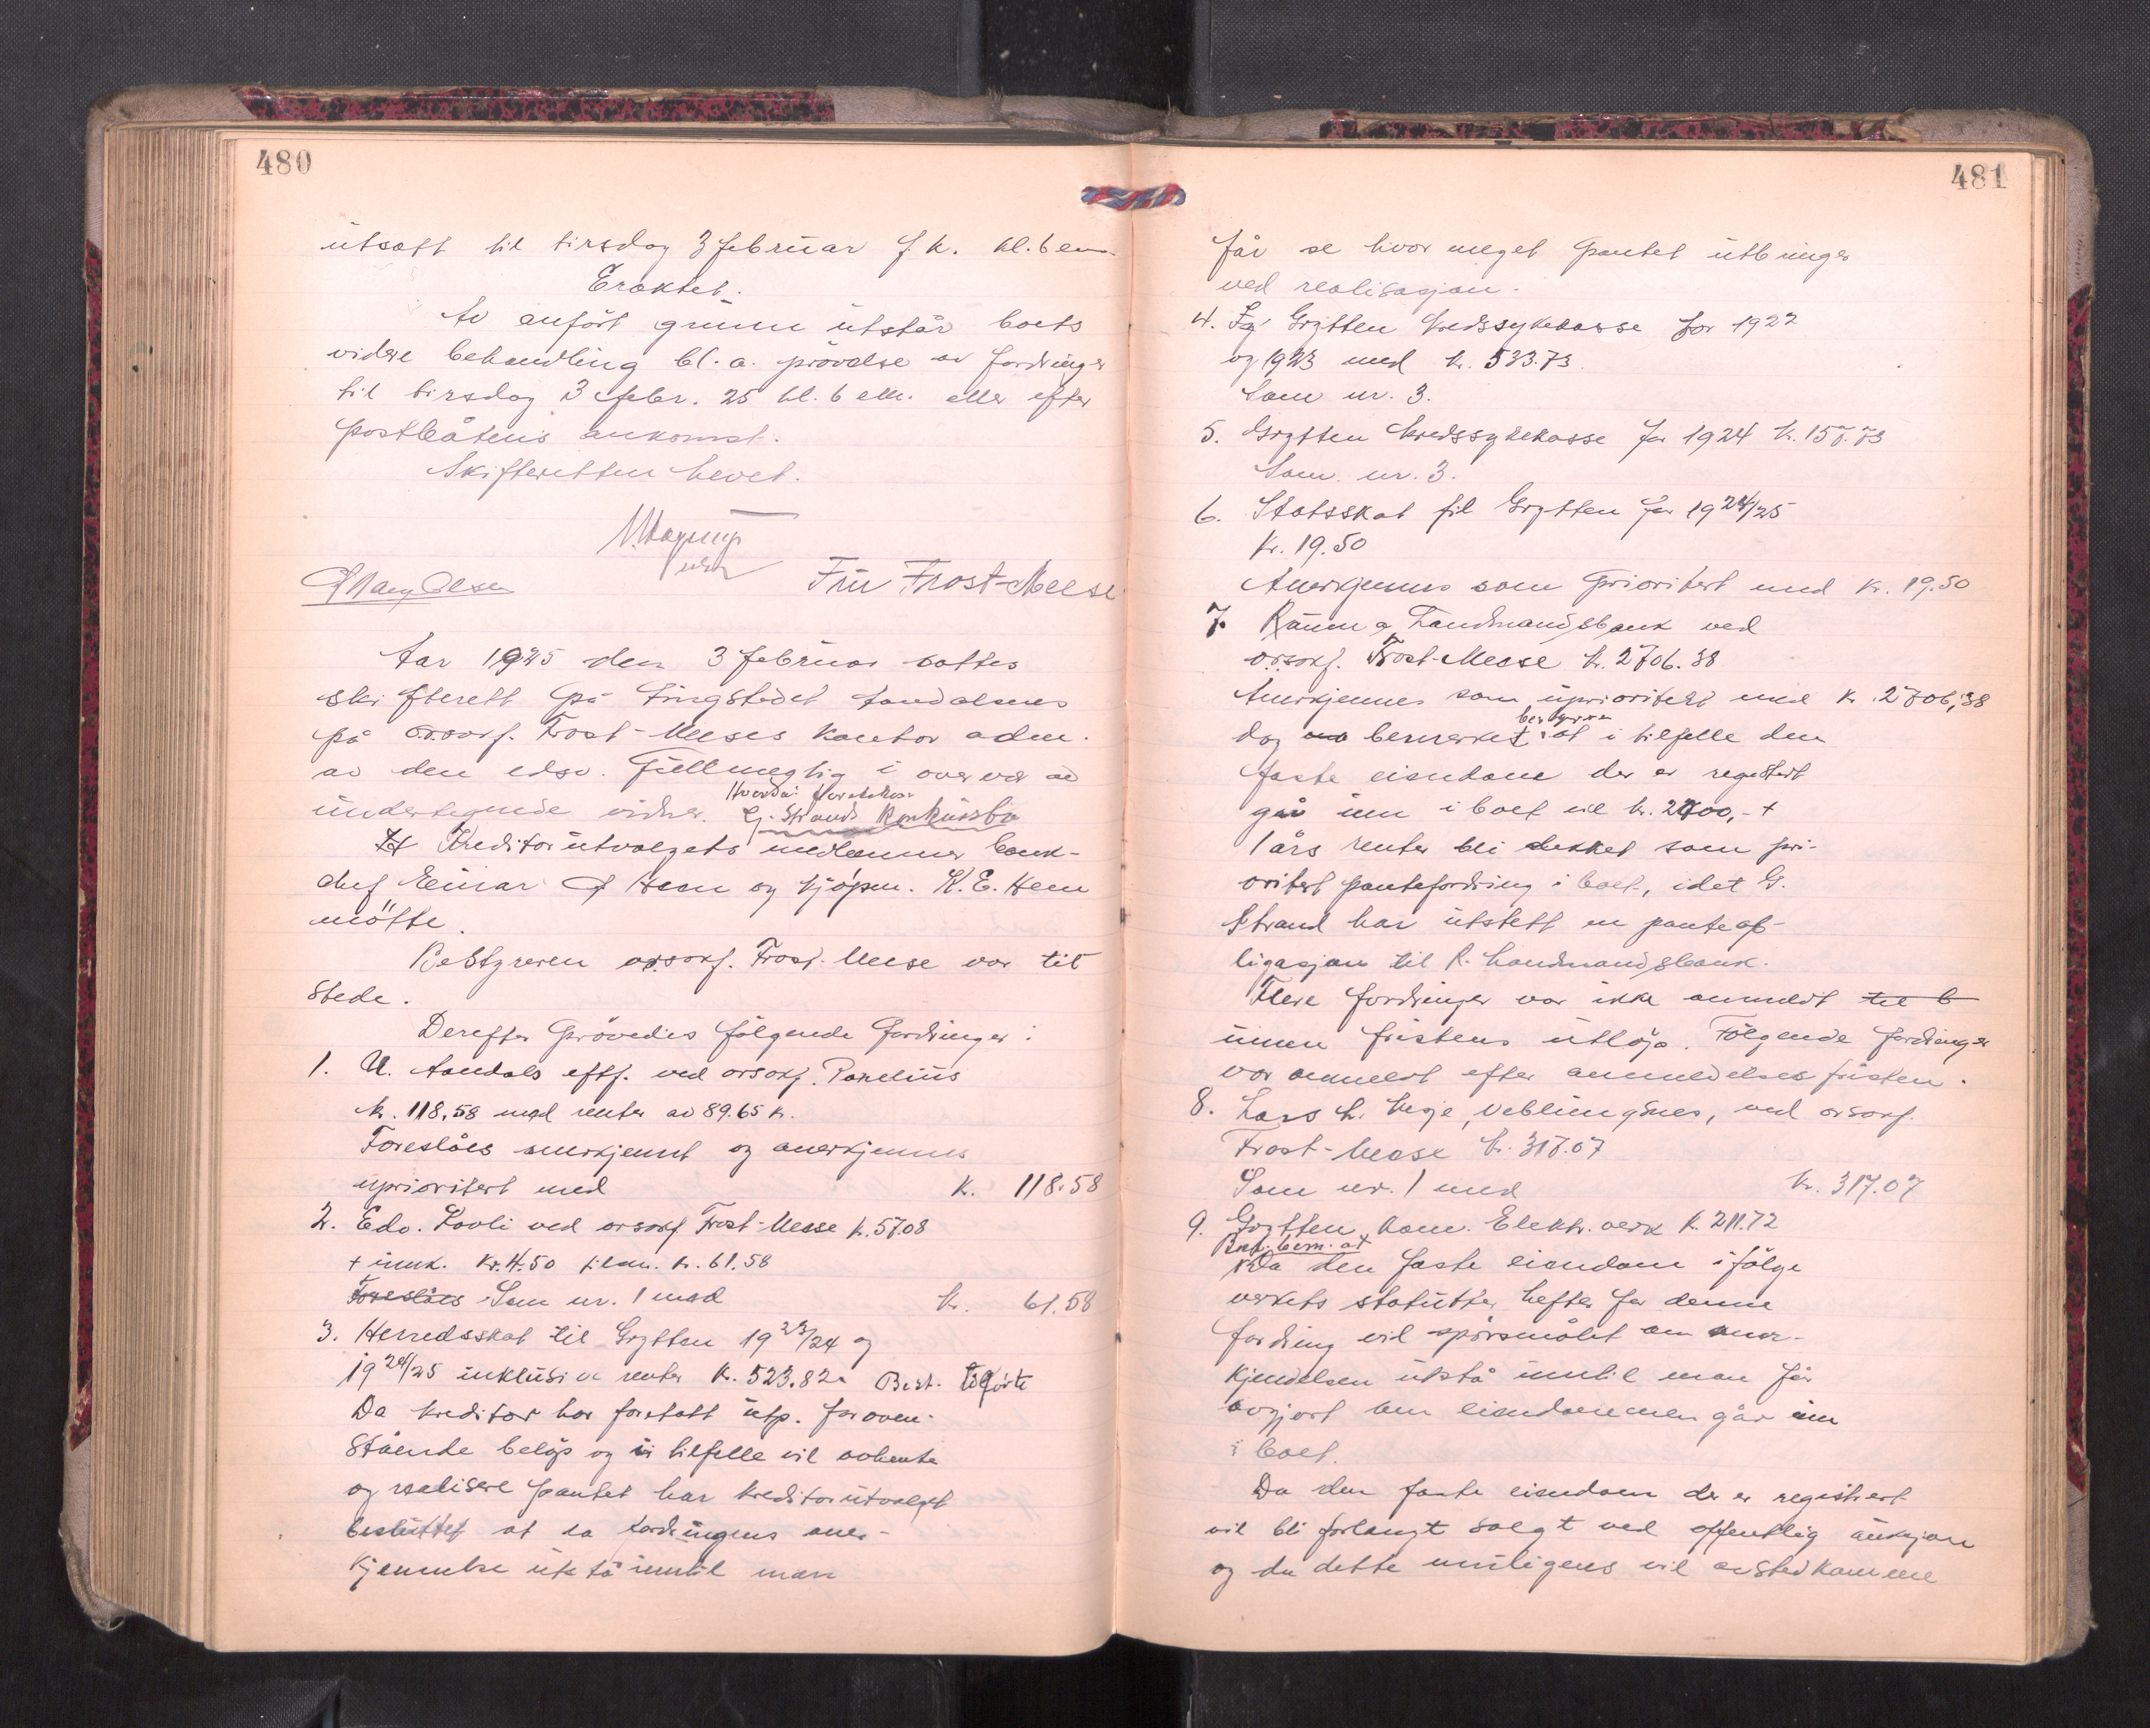 480
utsatt til tirsdag 3 februar f k. kl. 6 em.
Eraktet.
Av anført grunn utstår boets
videre behandling bl. a. prøvelse av fordringer
til tirsdag 3 febr. 25 kl. 6 em. eller efter
postbåtens ankomst.
Skifteretten hevet.
Mary Olsen
Frost-Meese
Aar 1925 den 3 februar sattes
skifterett på tingstedet Aandalsnes
på o.r.sakf. Frost-Meeses kontor adm.
av den edsv. fullmegtig i overvær av
undertegnede vidner.
G. Strands Konkursbo
Kreditorutvalgets medlemmer bank-
chef Einar Heen og kjøpm. K. E. Heen
møtte.
Bestyreren orsakf. Frost-Meese var til
stede.
Derefter prøvedes følgende fordringer:
1. U. Aandals eftf. ved orsakf.
kr. 118,58 med renter av 89.65 kr.
Foreslåes anerkjennt og anerkjennes
uprioritert med kr. 118.58
2. Edv. Lovli ved orsakf. Frost-Meese kr. 57.08
+ innk. kr. 4.50 tilsm. kr. 61.58
Foreslåes Som nr. 1 med kr. 61.58
3. Herredsskat til Grytten 1923/24 og
1924/25 inklusive renter kr. 523.82. Best. tilførte
Da kreditor har foretatt utp. for oven-
stående beløp og i tilfelle vil avhente
og realisere pantet har kreditorutvalget
besluttet at la fordringens aner-
kjennelse utstå inntil man
481
får se hvor meget pantet utbringes
ved realisasjon.
4. Grytten kredssykekasse for 1922
og 1923 med kr. 533.73
Som nr. 3.
5. Grytten kredssykekasse for 1924 kr. 157.73
Som nr. 3.
6. Statsskat til Grytten for 1924/25
kr. 19.50
Anerkjennes som prioritert med kr. 19.50
7. Rauma Landmandsbank ved
o.r.sakf. Frost-Meese kr. 2706.38
Anerkjennes som uprioritert med kr. 2706,38
bestyreren
dog bemerket at i tilfelle den
faste eiendom der er registrert
går inn i boet vil kr. 2700,- +
1 års renter bli dekket som pri-
oritert pantefordring i boet, idet G.
Strand har utstett en panteob-
ligasjon til R. Landmandsbank.
Flere fordringer var ikke anmeldt til b
innen fristens utløp. Følgende fordringer
var anmeldt efter anmeldelsesfristen.
8. Lars L. Veblungsnes, ved orsakf.
Frost-Meese kr. 317.07
Som nr. 1 med kr. 317.07
9. Grytten kom. Elektr. verk kr. 211.72
Best. bem. at
Da den faste eiendom ifølge
verkets statutter hefter for denne
fordring vil spørsmålet om aner-
kjendelsen utstå inntil man får
avgjort om eiendommen går inn
i boet.
Da den faste eiendom der er registrert
vil bli forlangt solgt ved offentlig auksjon
og da dette muligens vil avstedkomme